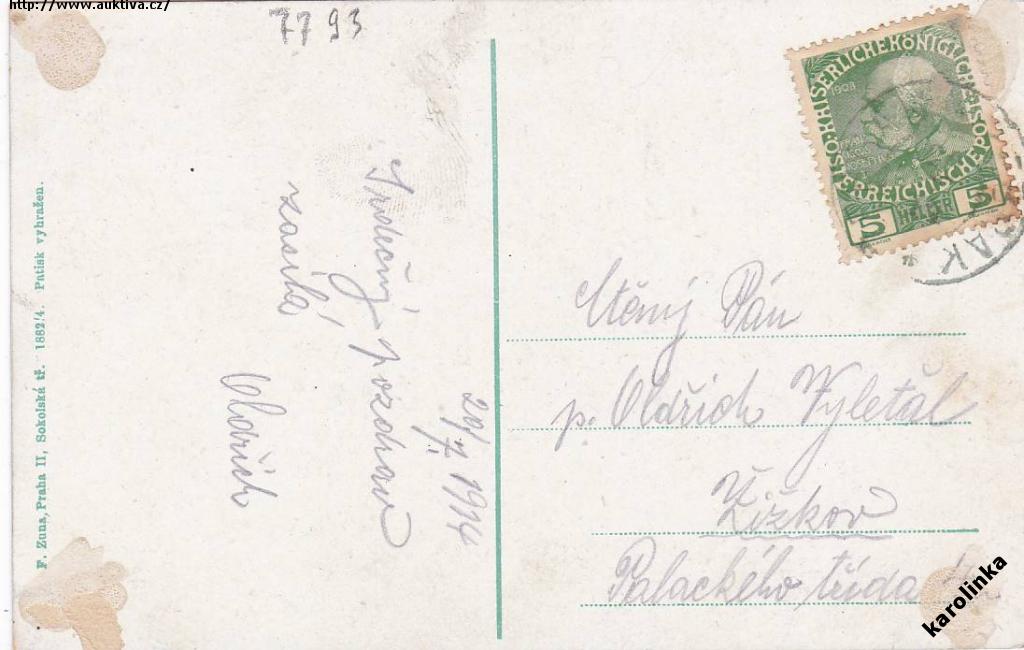 http://www.auktiva.cz/
7793
F. Zuna, Praha II, Sokolská tř. 1882/4. Patisk vyhražen.
29/7 1914
Srdečný pozdrav
zasílá
Oldřich
KAISERLICHE KÖNIGLICHE ÖSTERREICHISCHE POST
1908
5 HELLER 5
Ctěný Pán
p. Oldřich Vyletăl
Žižkov
Palackého třída
karolinka